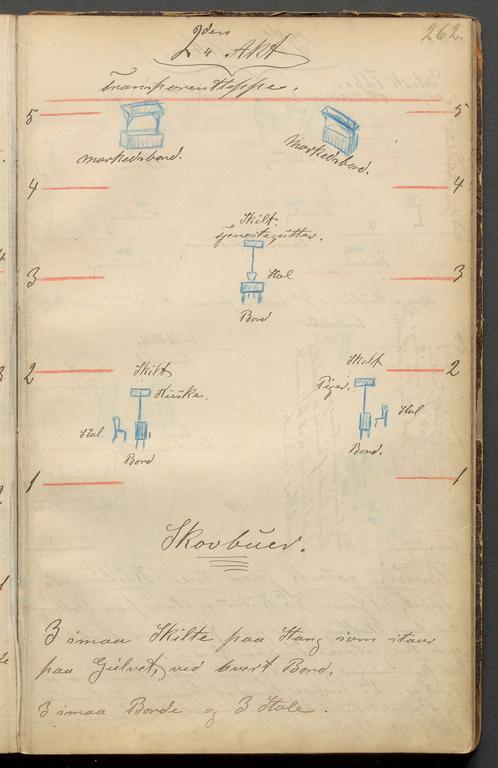 262.
2den Akt
Transparenttæppe.
5 5
Markedsbord. Markedsbord.
4 4
Skilt
Tjenestegutter.
3 Stol 3
Bord
2 Skilt Skilt 2
Kuske. Piger.
Stol Stol
Bord Bord.
1 1
Skovbuer.
3 smaa Skilte paa Stang som staar
paa Gulvet, ved hvert Bord.
3 smaa Borde og 3 Stole.